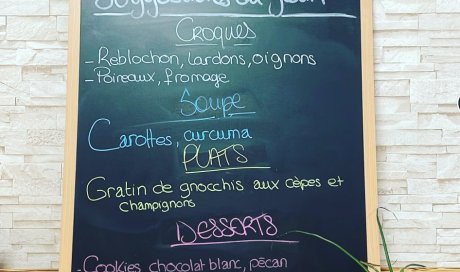 Suggestions du jour
Croques
- Reblochon, lardons, oignons
- Poireaux, fromage
Soupe
Carottes, curcuma
PLATS
Gratin de gnocchis aux cèpes et
champignons
DESSERTS
- Cookies chocolat blanc, pécan